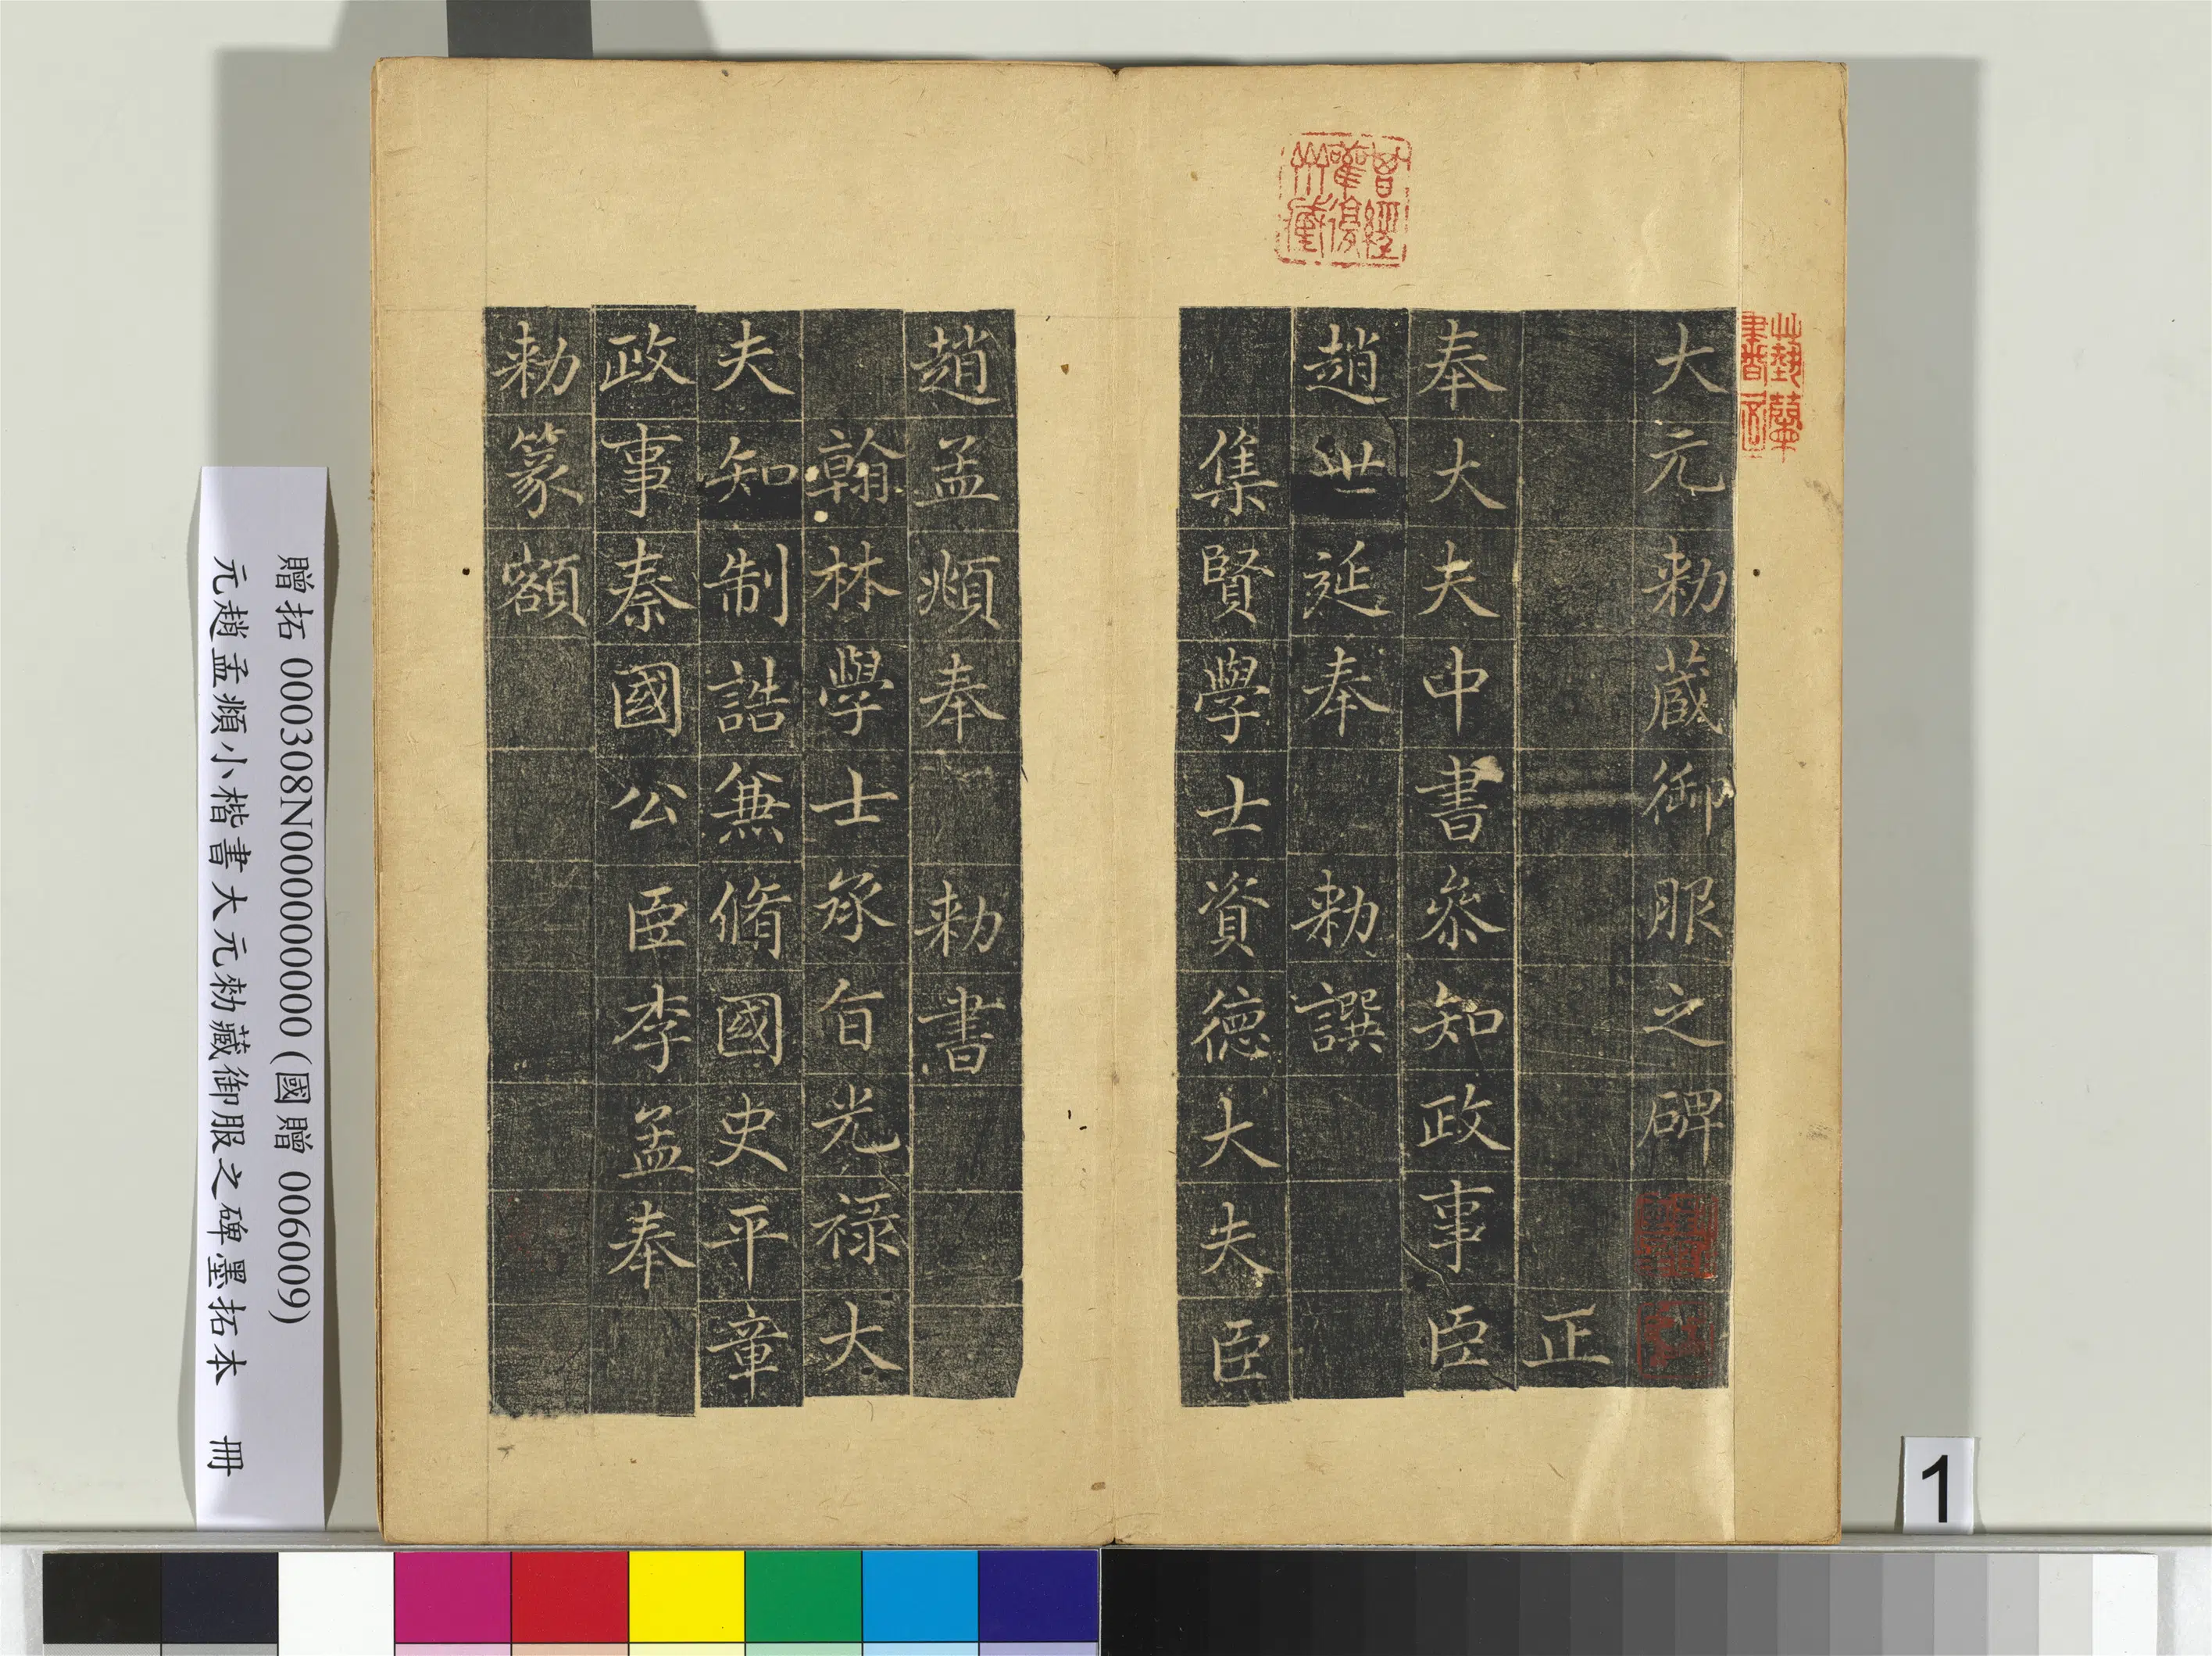 大元勑蔵御服之碑
正
奉大夫中書叅知政事臣
趙世延奉 勑譔
集賢學士資德大夫臣
趙孟頫奉 勑書
翰林學士承旨光禄大
夫知制誥兼脩國史平章
政事秦國公臣李孟奉
勑篆額
曾經
舊復
藏
贈拓 000308N000000000 (國贈 006009)
元趙孟頫小楷書大元勑藏御服之碑墨拓本 冊
1